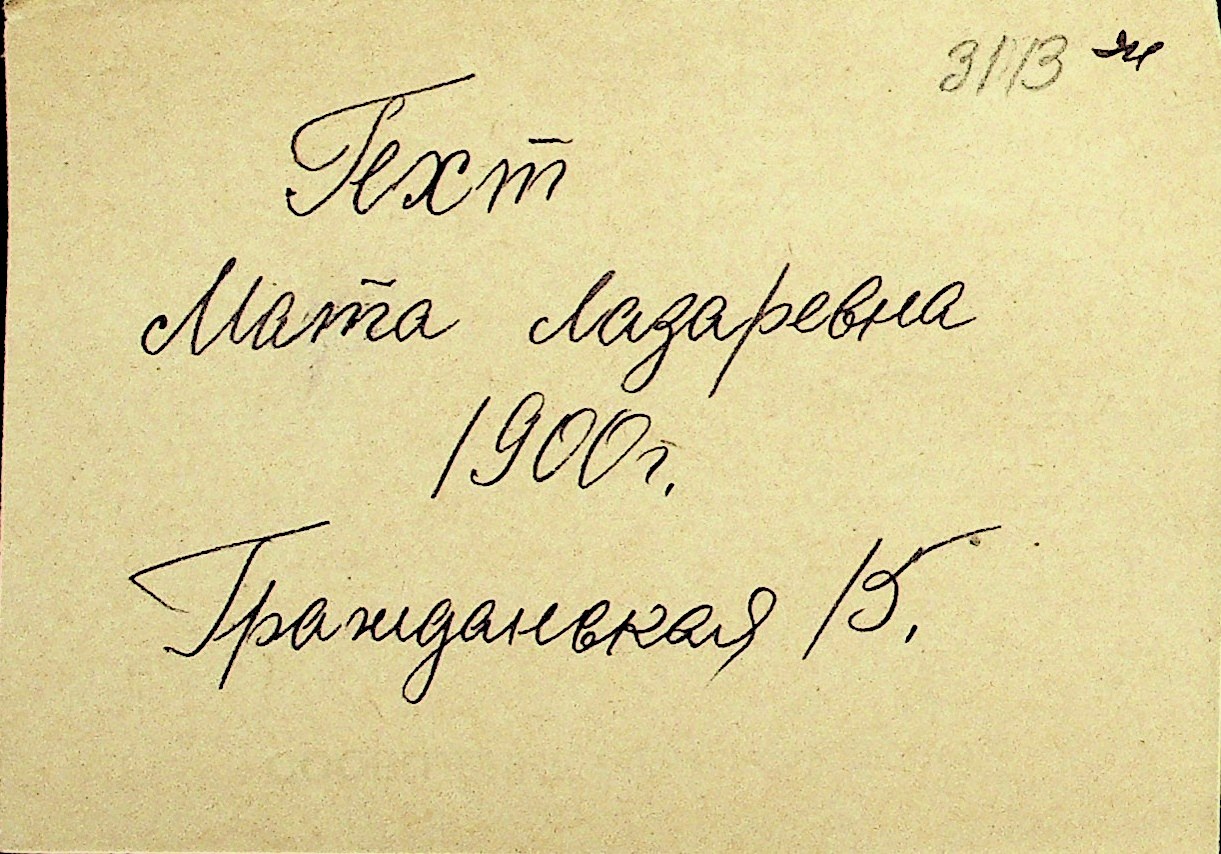 3113 эк
Гехт
Мата Лазаревна
1900г.
Гражданская 15,